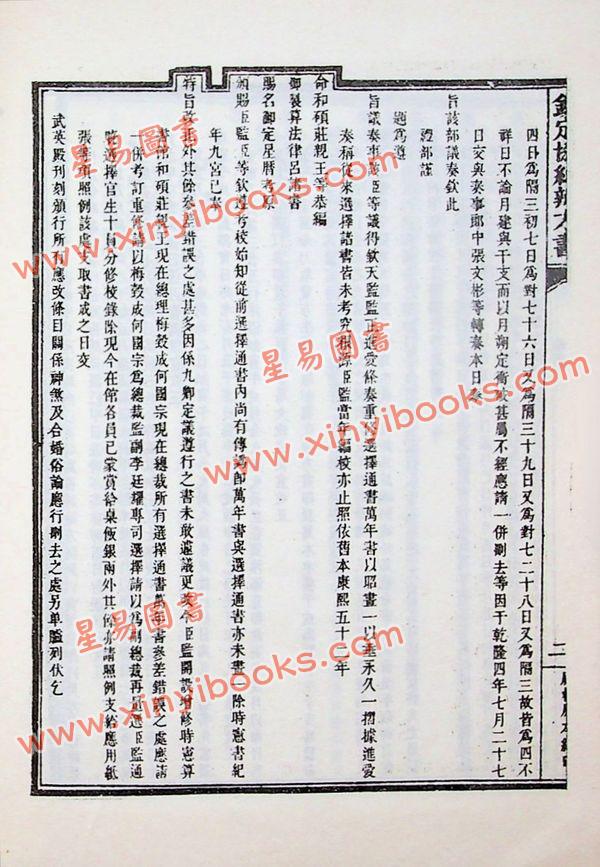 欽定協紀辨方書
四日為隔三初七日為對七十六日又為隔三十九日又為對七二十八日又為隔三故皆為四不
祥日不論月建與干支而以月朔定衝破甚屬不經應請一併刪去等因于乾隆四年七月二十七
日交與奏事郎中張文彬等轉奏本日奉
旨該部議奏欽此
禮部謹
題為遵
旨議奏事臣等議得欽天監監正進愛條奏重修選擇通書萬年書以昭畫一以垂永久一摺據進愛
奏稱從來選擇諸書皆未考究根源臣監當年編校亦止照依舊本康熙五十二年
命和碩莊親王等恭編
御製算法律呂諸書
賜名御定星曆考原
頒賜臣監臣等欽遵考校始知從前選擇通書內尚有傳訛即萬年書與選擇通書亦未畫一除時憲書紀
年九宮已奉
特旨改正外其餘參差錯誤之處甚多因係九卿定議遵行之書未敢遽議更改今臣監開設增修時憲算
書館和碩莊親王現在總理梅瑴成何國宗現在總裁所有選擇通書萬年書參差錯誤之處應請
一併考訂重修請以梅瑴成何國宗為總裁監副李廷耀專司選擇請以為副總裁再選臣監通
曉選擇官生十員分修校錄除現今在館各員已蒙賞給桌飯銀兩外其餘亦請照例支給應用紙
張等項照例該處支取書成之日交
武英殿刊刻頒行所有應改條目關係神煞及合婚俗論應行刪去之處另单隘列伏乞
星易圖書
www.xinyibooks.com
星易圖書
www.xinyibooks.com
星易圖書
www.xinyibooks.com